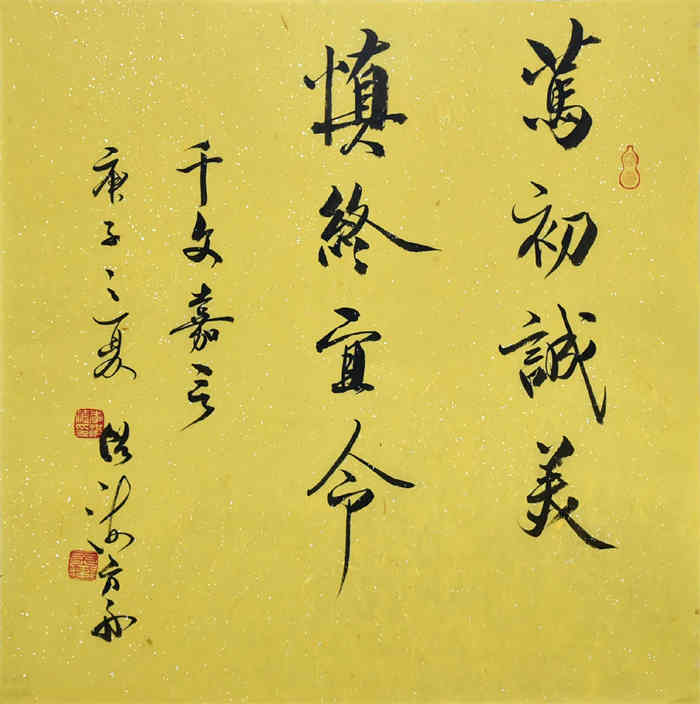 篤初誠美
慎終宜令
千文嘉言
庚子之夏 海方舟